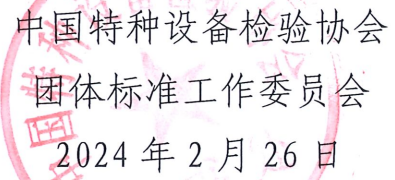 中国特种设备检验协会
团体标准工作委员会
2024年2月26日